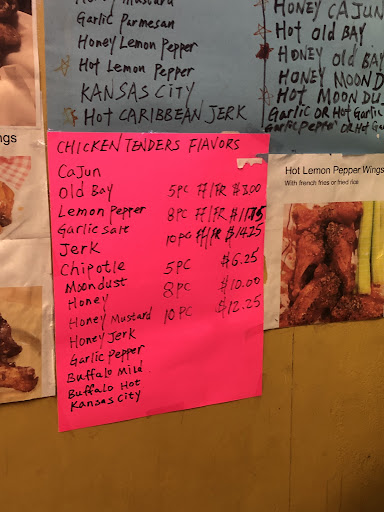 Honey Mustard
Garlic Parmesan
Honey Lemon Pepper
Hot Lemon Pepper
KANSAS CITY
Hot CARIBBEAN JERK
HONEY CAJUN
Hot old BAY
HONEY old BAY
HONEY MOOND
Hot MOONDU
Garlic OR Hot Garlic
Garlic Pepper OR Hot G
ngs
CHICKEN TENDERS FlAVORS
Cajun
Old Bay 5PC FF/FR $3.00
Lemon Pepper 8PC FF/FR $11.75
Garlic Salt 10PC FF/FR $14.25
Jerk
Chipotle 5PC $6.25
Moondust 8PC $10.00
Honey
Honey Mustard 10PC $12.25
Honey Jerk
Garlic Pepper
Buffalo Mild
Buffalo Hot
Kansas City
Hot Lemon Pepper Wings
With french fries or fried rice